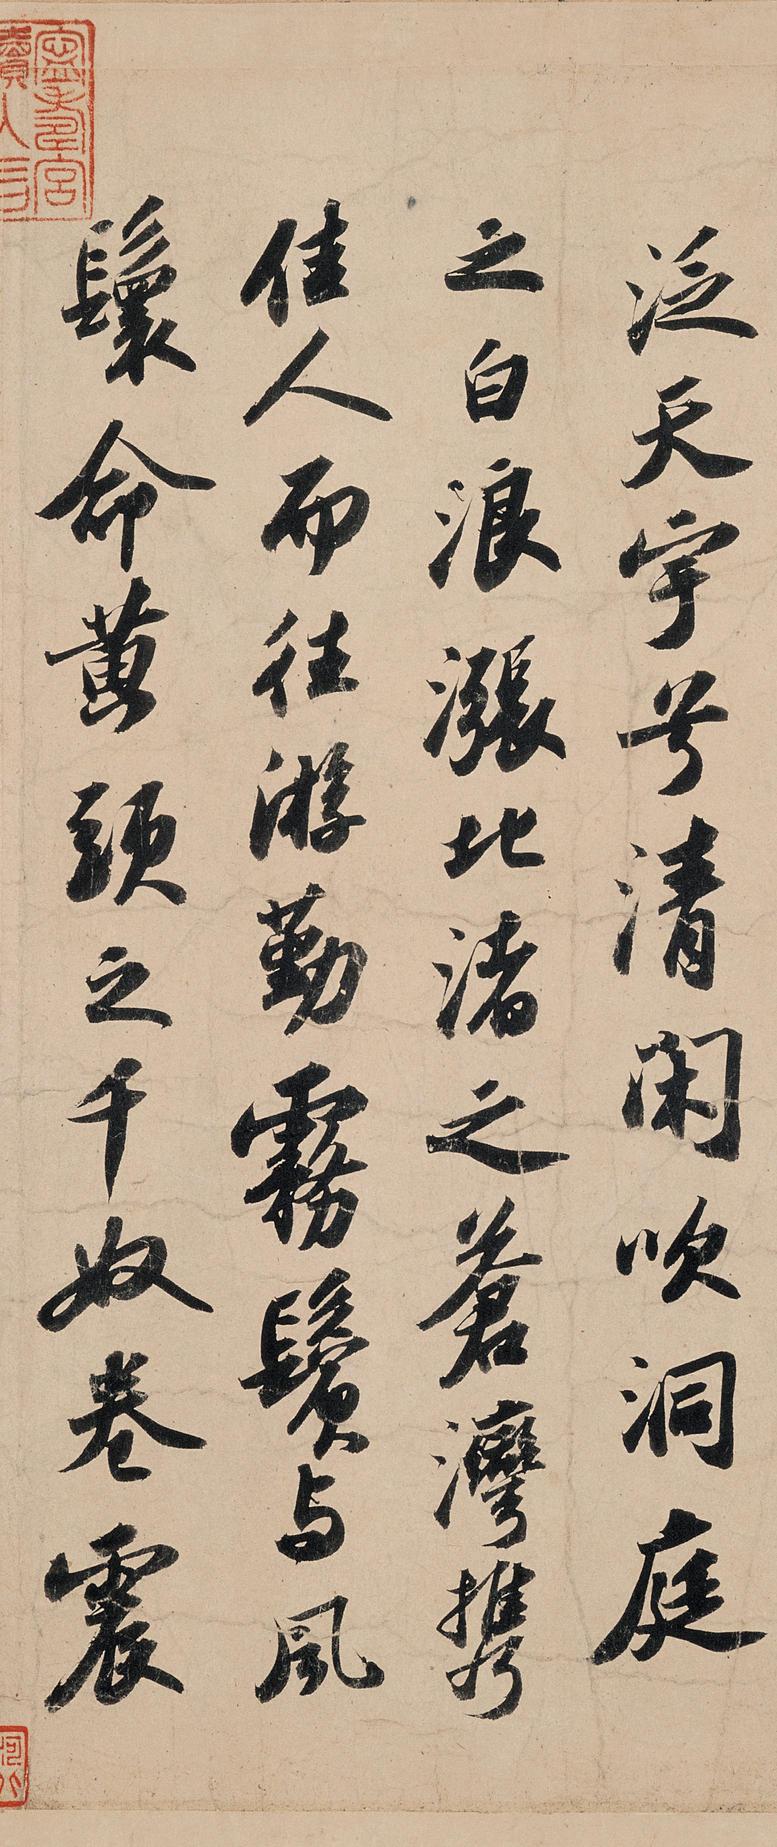 泛天宇兮清閑吹洞庭
之白浪漲北渚之蒼灣携
佳人而往游勤霧鬢与風
鬟命黄頭之千奴卷震
寧壽宮
續入